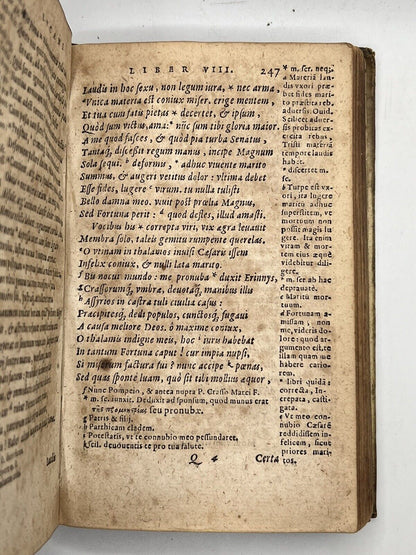 LIBER VIII. 247
Laudis in hoc sexu, non legum iura, * nec arma,
Vnica materia est coniux miser. erige mentem,
Et tua cum fatis pietas * decertet, & ipsum,
Quòd sum victus, ama: * nũc sum tibi gloria maior.
A me quod fasces, & quòd pia turba Senatus,
Tantaq́; discessit regum manus, incipe Magnum
Sola sequi. b deformis, a adhuc viuente marito
Summus, & augeri vetitus dolor: vltima debet
Esse fides, lugere c virum. tu nulla tulisti
Bello damna meo. viuit post prœlia Magnus,
Sed Fortuna perit: d quod defles, illud amasti.
Vocibus his * correpta viri, vix ægra leuauit
Membra solo, tales gemitu rumpente querelas.
O vtinam in thalamos inuisi Cæsaris issem
Infelix coniux, & nulli læta marito.
f Bis nocui mundo: me pronuba * duxit Erinnys,
g Crassorumq́; vmbræ, deuotaq́; manibus illis
h Assyrios in castra tuli ciuilia casus:
Præcipitesq́; dedi populos, cunctosq́; fugaui
A causa meliore Deos. ô maxime coniux,
O thalamis indigne meis, hoc i iuris habebat
In tantum Fortuna caput! cur impia nupsi,
Si miserum factura fui? nunc accipe k pœnas,
Sed quas sponte luam, quò sit tibi mollius æquor,
f Nunc Pompeio, & antea nupra P. Crasso Marci F.
* m. ser. iunxit. Deduxit ad sponsum, quod munus erat
seu pronubæ.
g Patris & filij.
h Parthicam cladem.
i Potestatis, vt te connubio meo pessundaret.
k scil. deuouenti te pro tua salute.
Q 4 Certa
* m. ser. neq;
a Materia laudis
vxori præbetur,
si fides
marito præstita
rebus aduersis.
Scilicet aduersis
probitas exercita
rebus,
Tristi materiã
tempore laudis
habet.
* discertet m.
se.
b Turpe est vxori,
marito
adhuc superstitem,
vt mortuum
non possit
magis lugere.
Ita enim
viram & mortem
eius æquè
videbitur diligere.
* m. ser. ab hac
deprauatè.
c Maritũ mortuum.
d Fortunam amissam,
non me,
inde condole:
& quod argumento
est, te
istam magis
quàm me
habuisse carã.
* libri quidã
correcta, increpata,
castigata.
e Vt meo connubio
Cæsarẽ
reddidissem
infelicem, sicut
priores maritos.